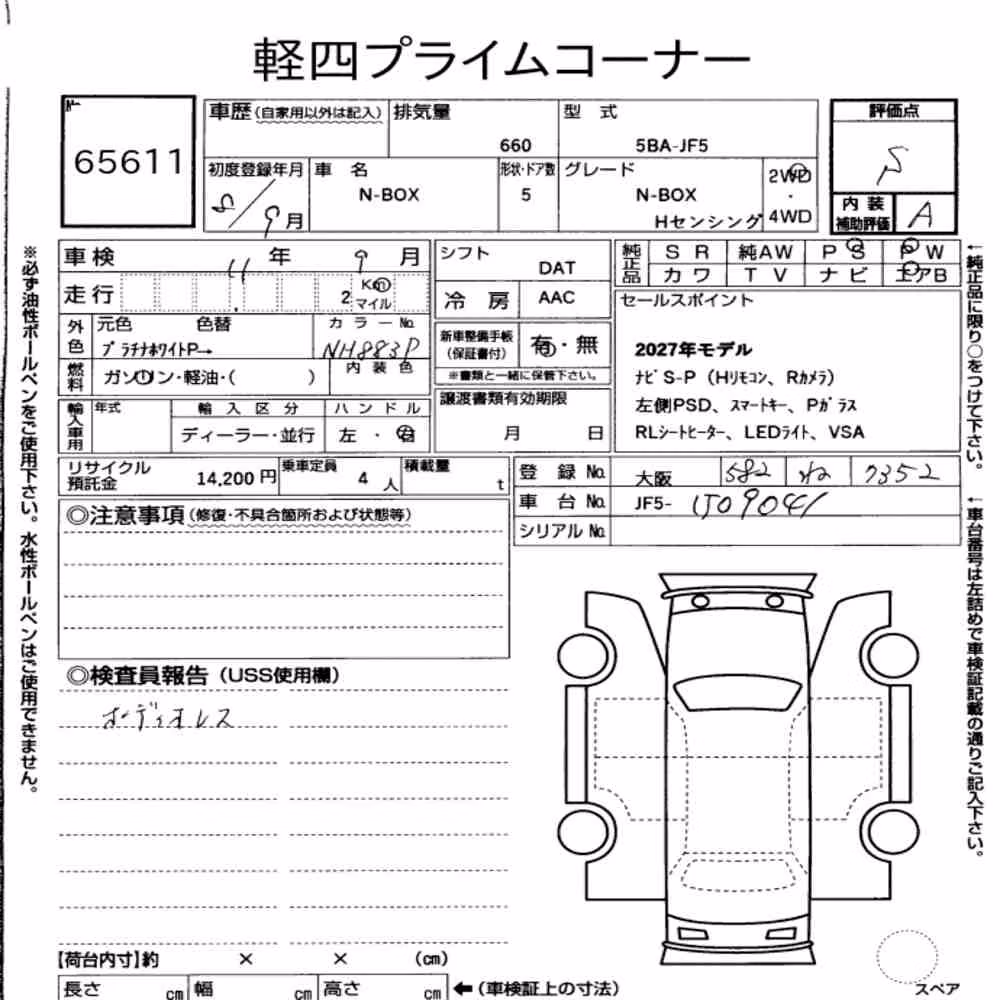 軽四プライムコーナー
65611
車歴 (自家用以外は記入) 排気量 660 型式 5BA-JF5
評価点 S
初度登録年月 8/9月 車名 N-BOX 形状・ドア数 5 グレード N-BOX Hセンシング 2WD・4WD
内装補助評価 A
車検 11年 9月 シフト DAT
純正品 SR 純AW PS PW
カワ TV ナビ エアB
走行 2 Km マイル 冷房 AAC
外色 元色 色替 カラーNo.
プラチナホワイトP→ NH883P
新車整備手帳(保証書付) 有・無
※書類と一緒に保管下さい。
燃料 ガソリン・軽油・( ) 内装色
セールスポイント
2027年モデル
ナビS-P(Hリモコン、Rカメラ)
左側PSD、スマートキー、Pガラス
RLシートヒーター、LEDライト、VSA
輸入車用 年式 輸入区分 ハンドル
ディーラー・並行 左・右
譲渡書類有効期限
月 日
リサイクル預託金 14,200円 乗車定員 4人 積載量 t
登録No. 大阪 582 ね 7352
車台No. JF5- 1509041
シリアルNo.
◎注意事項(修復・不具合箇所および状態等)
◎検査員報告(USS使用欄)
オーディオレス
【荷台内寸】約 × × (cm)
長さ cm 幅 cm 高さ cm ←(車検証上の寸法)
スペア
※必ず油性ボールペンをご使用下さい。水性ボールペンはご使用できません。
←純正品に限り○をつけて下さい。
←車台番号は左詰めで車検証記載の通りご記入下さい。